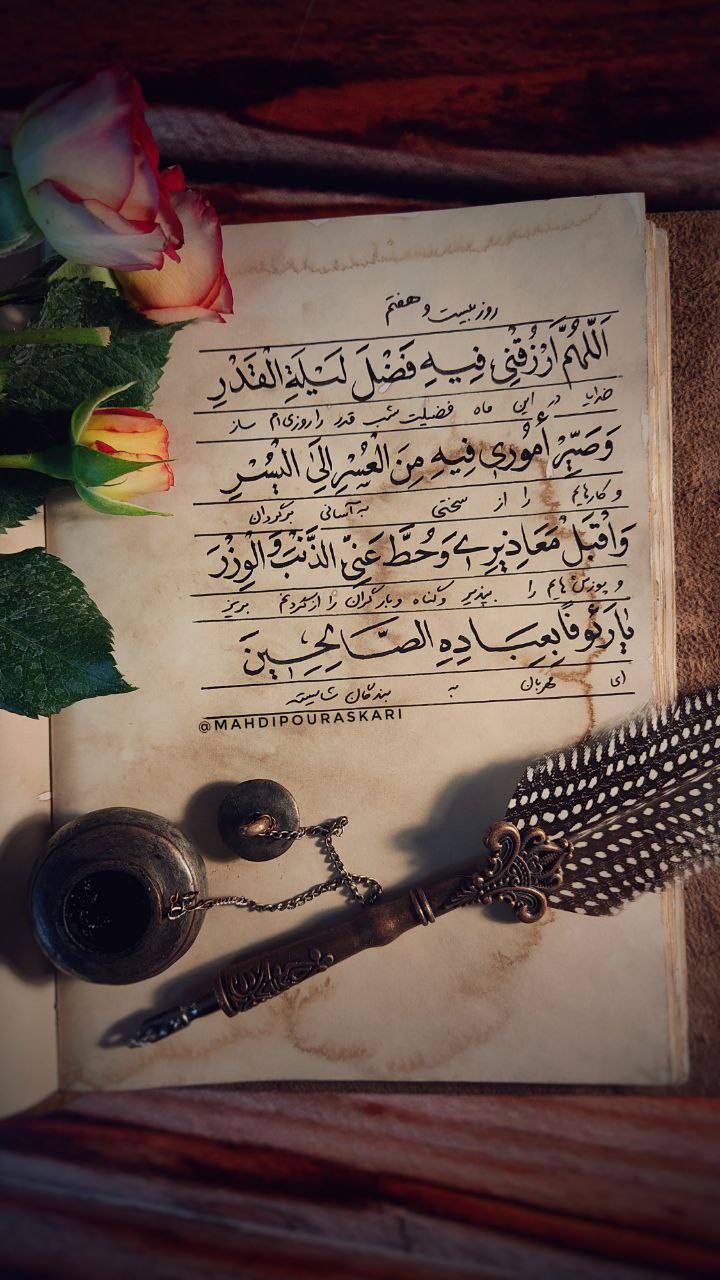 روز بیست و هفتم
اَللّهُمَّ ارْزُقْنِی فِیهِ فَضْلَ لَیْلَةِ الْقَدْرِ
خدایا در این ماه فضیلت شب قدر را روزی‌ام ساز
وَصَیِّرْ اُمُوری فِیهِ مِنَ الْعُسْرِ اِلَی الْیُسْرِ
و کارهایم را از سختی به آسانی برگردان
وَاقْبَلْ مَعَاذِیرِی وَحُطَّ عَنِّی الذَّنْبَ وَالْوِزْرَ
و پوزش‌هایم را بپذیر و گناه و بار گران را از گرده‌ام بریز
یَا رَئُوفًا بِعِبَادِهِ الصَّالِحِینَ
ای مهربان به بندگان شایسته
@MAHDIPOURASKARI